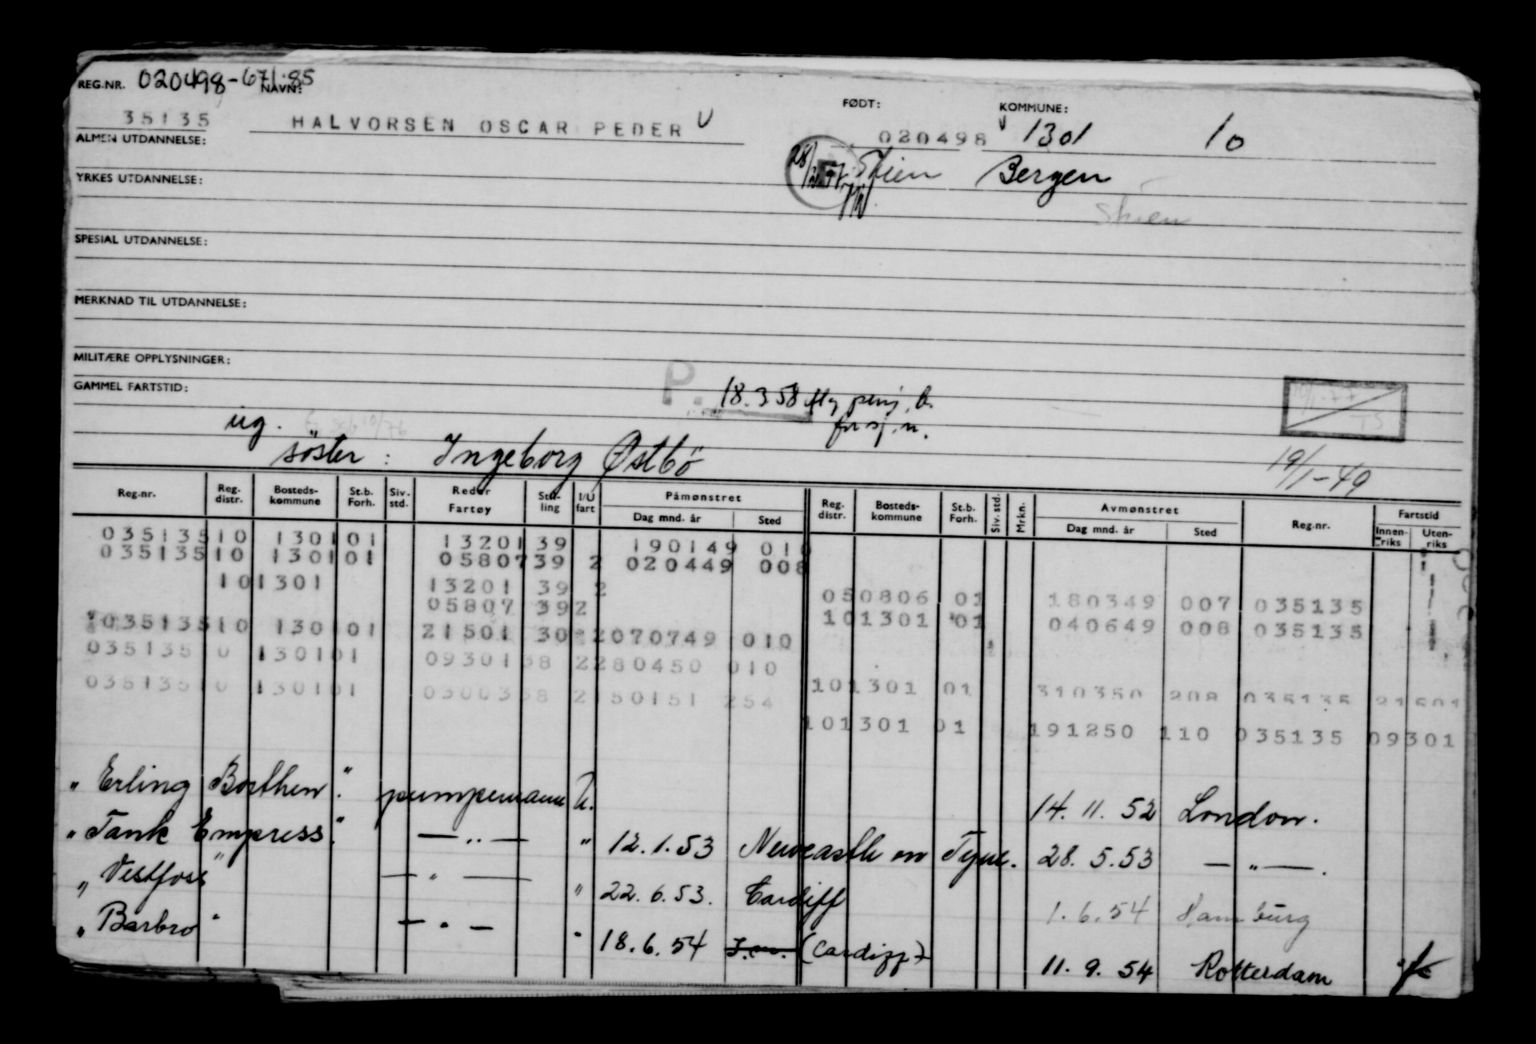 REG.NR. 020498-671.85
NAVN:
FØDT:
KOMMUNE:
35135 HALVORSEN OSCAR PEDER V 020498 V 1301 10
ALMEN UTDANNELSE:
Skien Bergen
YRKES UTDANNELSE:
Skien
SPESIAL UTDANNELSE:
MERKNAD TIL UTDANNELSE:
MILITÆRE OPPLYSNINGER:
GAMMEL FARTSTID:
P. 18.3.58
ug.
søster: Ingeborg Østbö 19/1-49
Reg.nr. Reg. distr. Bosteds-kommune St.b. Forh. Siv. std. Reder Fartøy Stil-ling I/U fart Påmønstret Dag mnd. år Sted Reg. distr. Bosteds-kommune St.b. Forh. Siv. std. Mrkn. Avmønstret Dag mnd. år Sted Reg.nr. Fartstid Innen-riks Uten-riks
035135 10 1301 01 13201 39 190149 010
035135 10 1301 01 05807 39 2 020449 008
10 1301 13201 39 2 050806 01 180349 007 035135
05807 39 2 101301 01 040649 008 035135
035135 10 1301 01 21501 30 2 070749 010
035135 0 1301 01 09301 38 2 280450 010
101301 01 310350 208 035135 21501
035135 10 1301 01 03003 38 2 150151 254
101301 01 191250 110 035135 09301
" Erling Borthen " pumpemann U. 14.11.52 London.
" Tank Empress " — " — " 12.1.53 Newcastle on Tyne. 28.5.53 — " —.
" Vestfoss " — " — " 22.6.53. Cardiff 1.6.54 Hamburg
" Barbro " — " — " 18.6.54 (Cardiff) 11.9.54 Rotterdam